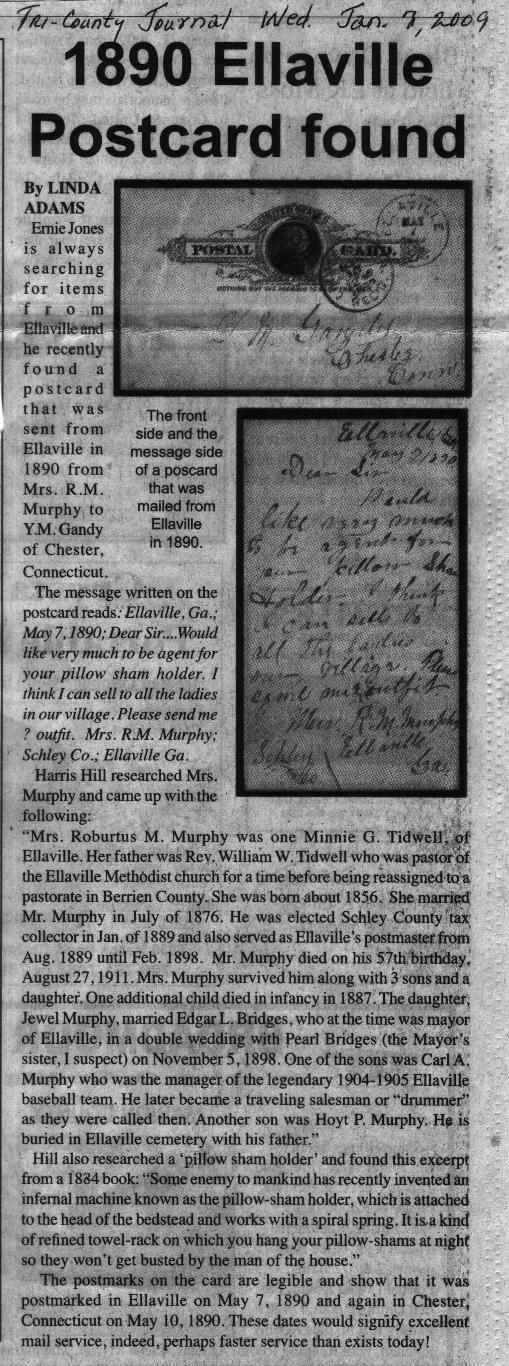 Tri-County Journal Wed. Jan. 7, 2009
1890 Ellaville
Postcard found
By LINDA
ADAMS
Ernie Jones
is always
searching
for items
from
Ellaville and
he recently
found a
postcard
that was
sent from
Ellaville in
1890 from
Mrs. R.M.
Murphy to
Y.M. Gandy
of Chester,
Connecticut.
UNITED STATES
POSTAL CARD.
NOTHING BUT THE ADDRESS
Chester,
Conn
The front
side and the
message side
of a poscard
that was
mailed from
Ellaville
in 1890.
Ellaville Ga
May 7/1890
Dear Sir
Would
like very much
to be agent for
your Pillow Sham
Holder. I think
I can sell to
all the ladies in
our village. Please
send me outfit
Mrs. R.M. Murphy
Schley Ellaville
Co Ga.
The message written on the
postcard reads: Ellaville, Ga.;
May 7, 1890; Dear Sir....Would
like very much to be agent for
your pillow sham holder. I
think I can sell to all the ladies
in our village. Please send me
? outfit. Mrs. R.M. Murphy;
Schley Co.; Ellaville Ga.
Harris Hill researched Mrs.
Murphy and came up with the
following:
“Mrs. Roburtus M. Murphy was one Minnie G. Tidwell, of
Ellaville. Her father was Rev. William W. Tidwell who was pastor of
the Ellaville Methodist church for a time before being reassigned to a
pastorate in Berrien County. She was born about 1856. She married
Mr. Murphy in July of 1876. He was elected Schley County tax
collector in Jan. of 1889 and also served as Ellaville’s postmaster from
Aug. 1889 until Feb. 1898. Mr. Murphy died on his 57th birthday,
August 27, 1911. Mrs. Murphy survived him along with 3 sons and a
daughter. One additional child died in infancy in 1887. The daughter,
Jewel Murphy, married Edgar L. Bridges, who at the time was mayor
of Ellaville, in a double wedding with Pearl Bridges (the Mayor’s
sister, I suspect) on November 5, 1898. One of the sons was Carl A.
Murphy who was the manager of the legendary 1904-1905 Ellaville
baseball team. He later became a traveling salesman or “drummer”
as they were called then. Another son was Hoyt P. Murphy. He is
buried in Ellaville cemetery with his father.”
Hill also researched a ‘pillow sham holder’ and found this excerpt
from a 1834 book: “Some enemy to mankind has recently invented an
infernal machine known as the pillow-sham holder, which is attached
to the head of the bedstead and works with a spiral spring. It is a kind
of refined towel-rack on which you hang your pillow-shams at night
so they won’t get busted by the man of the house.”
The postmarks on the card are legible and show that it was
postmarked in Ellaville on May 7, 1890 and again in Chester,
Connecticut on May 10, 1890. These dates would signify excellent
mail service, indeed, perhaps faster service than exists today!